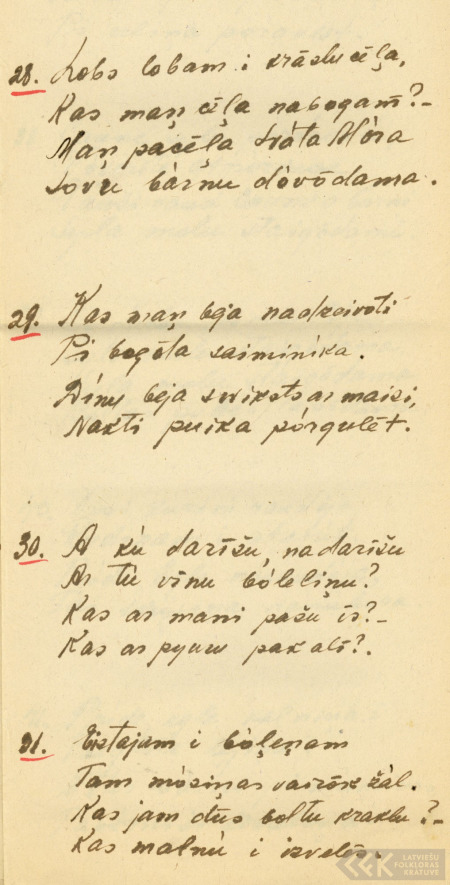 28. Lobs lobam i krāslu cēļa,
Kas maņ cēļa nabogam?-
Maņ pacēļa Svāta Mōra
Sovu bārnu dōvōdama.
29. Kas maņ beja nadzeivōti
Pi bogōta saiminīka.
Dīnu beja sviksts ar maizi,
Nakti puika pōrgulēt.
30. A kù darīšu, nadarīšu
Ar tù vīnu bōleliņu?
Kas ar mani pašu īs?-
Kas ar pyuru pakaļī?.
31. i bōļeņam
Tam mōsiņas vairōk žāl.
Kas jam dūs boltu kraklu?-
Kas malnù i izvelōs.
LATVIEŠU
FOLKLORAS
KRĀTUVE